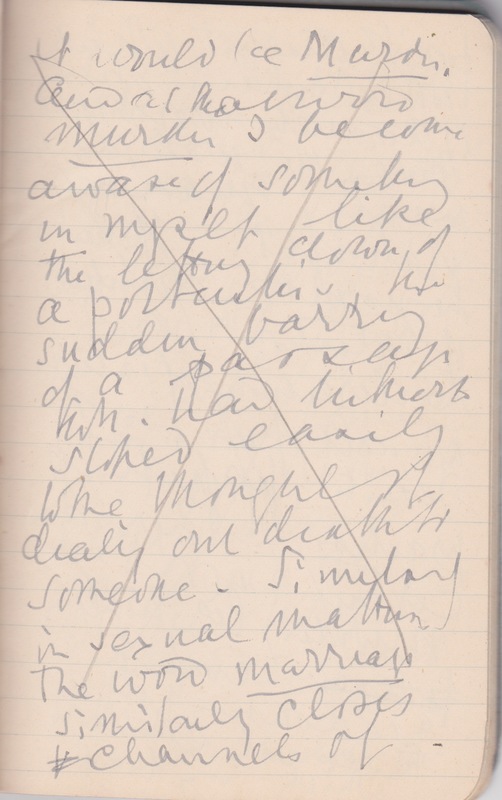 it would be Murder.
And at that word
murder I become
aware of something
in myself like
the letting down of
a portcullis, the
sudden barring
of a passage
that had hitherto
sloped easily
to the thought of
dealing out death to
someone. Similarly
in sexual matters
the word marriage
similarly closes
channels of